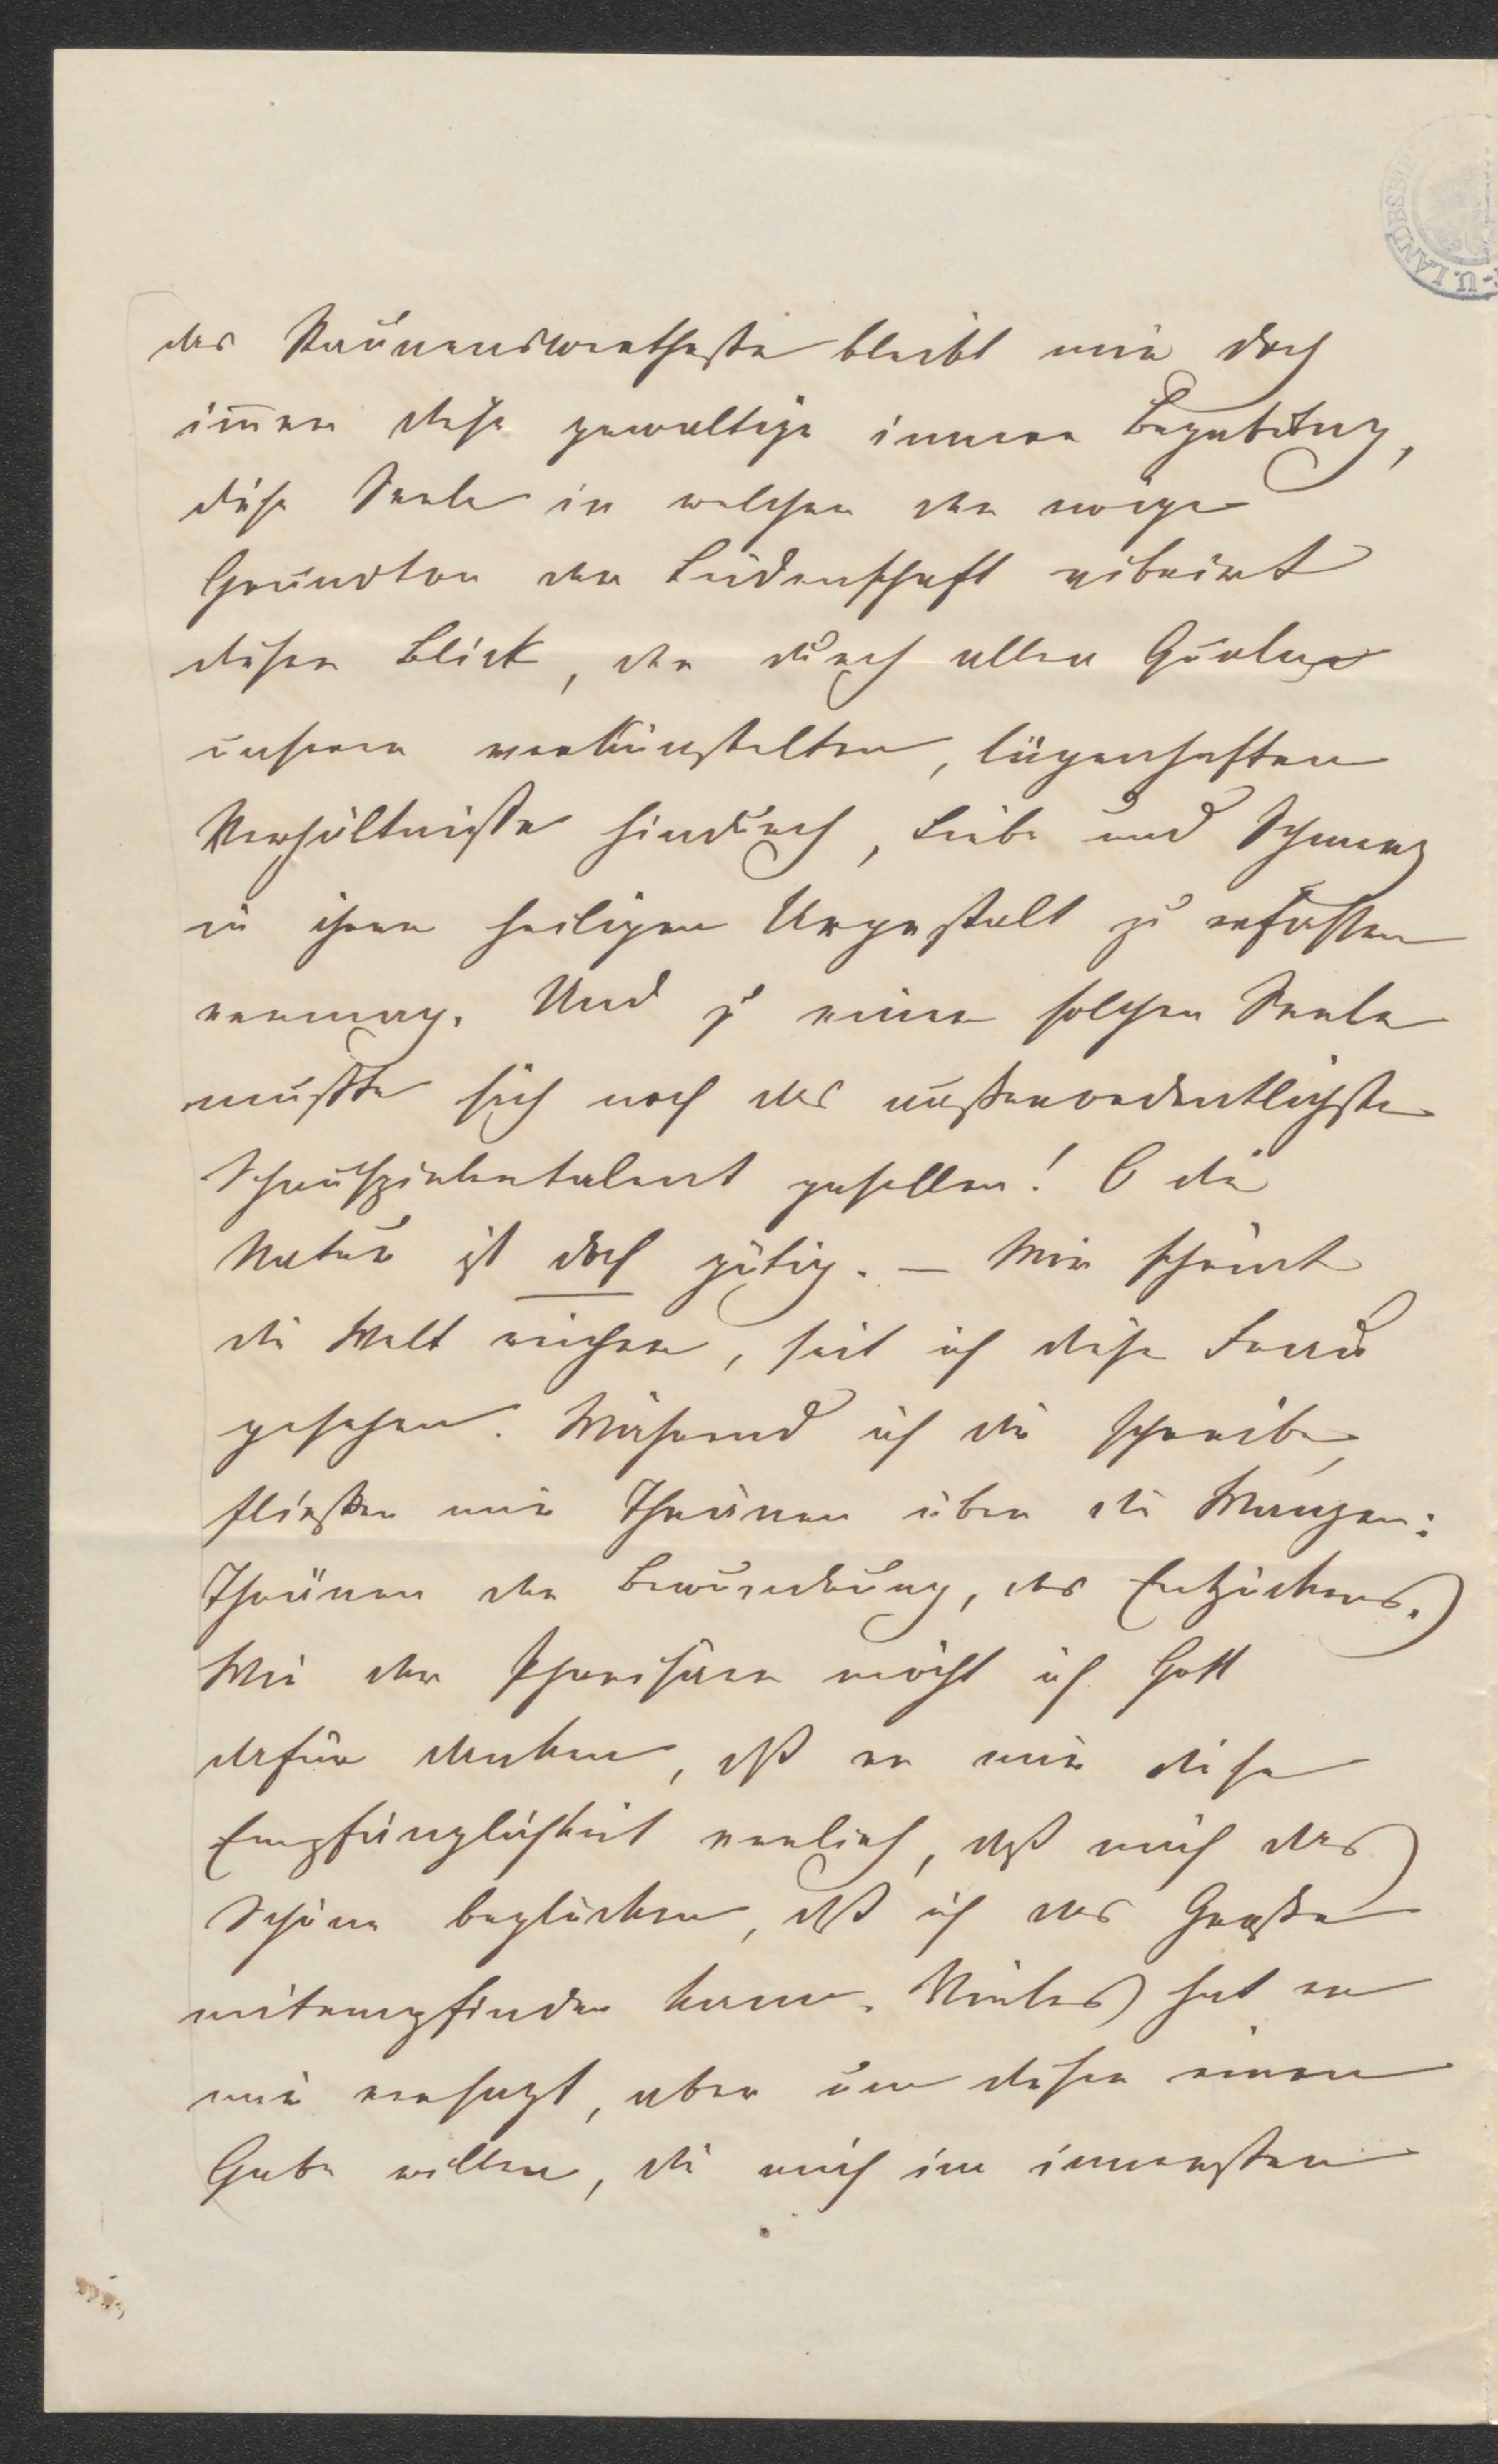 das Staunenswertheste bleibt mir doch
im̅er diese gewaltige innere Begabung,
diese Seele in welcher der ewige
Grundton der Leidenschaft vibrirt
dieser Blick, der durch allen
unserer verkünstelten, lügenhaften
Verhältnisse hindurch, Liebe und Schmerz
in ihrer heiligen Urgestalt zu erfassen
vermag. Und zu einer solchen Seele
mußte sich noch das außerordentlichste
Schauspielertalent gesellen! O die
Natur ist doch gütig. — Mir scheint
die Welt reicher, seit ich diese Frau
gesehen. Während ich dir schreibe,
fließen mir Thränen über die Wangen:
Thränen der Bewunderung, des Entzückens.
Wie der Pharisäer möcht ich Gott
dafür danken, dß er mir diese
Empfänglichkeit verlieh, dß mich das
Schöne beglücken, dß ich das Große
mitempfinden kann. Vieles hat er
mir versagt, aber um dieser einen
Gabe willen, die mich im innersten
U. LANDESBI